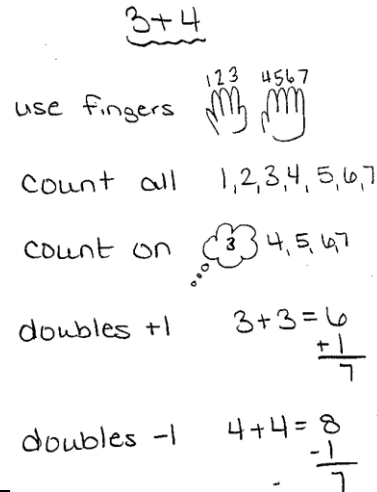 3+4
1 2 3 4 5 6 7
use fingers
count all 1,2,3,4,5,6,7
count on 3 4,5,6,7
doubles +1 3+3=6
+1
7
doubles -1 4+4=8
-1
7